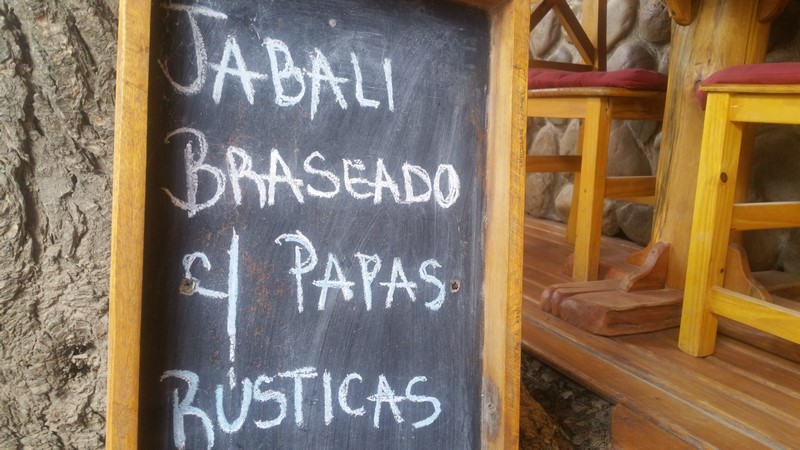 JABALI
BRASEADO
c/ PAPAS
RUSTICAS